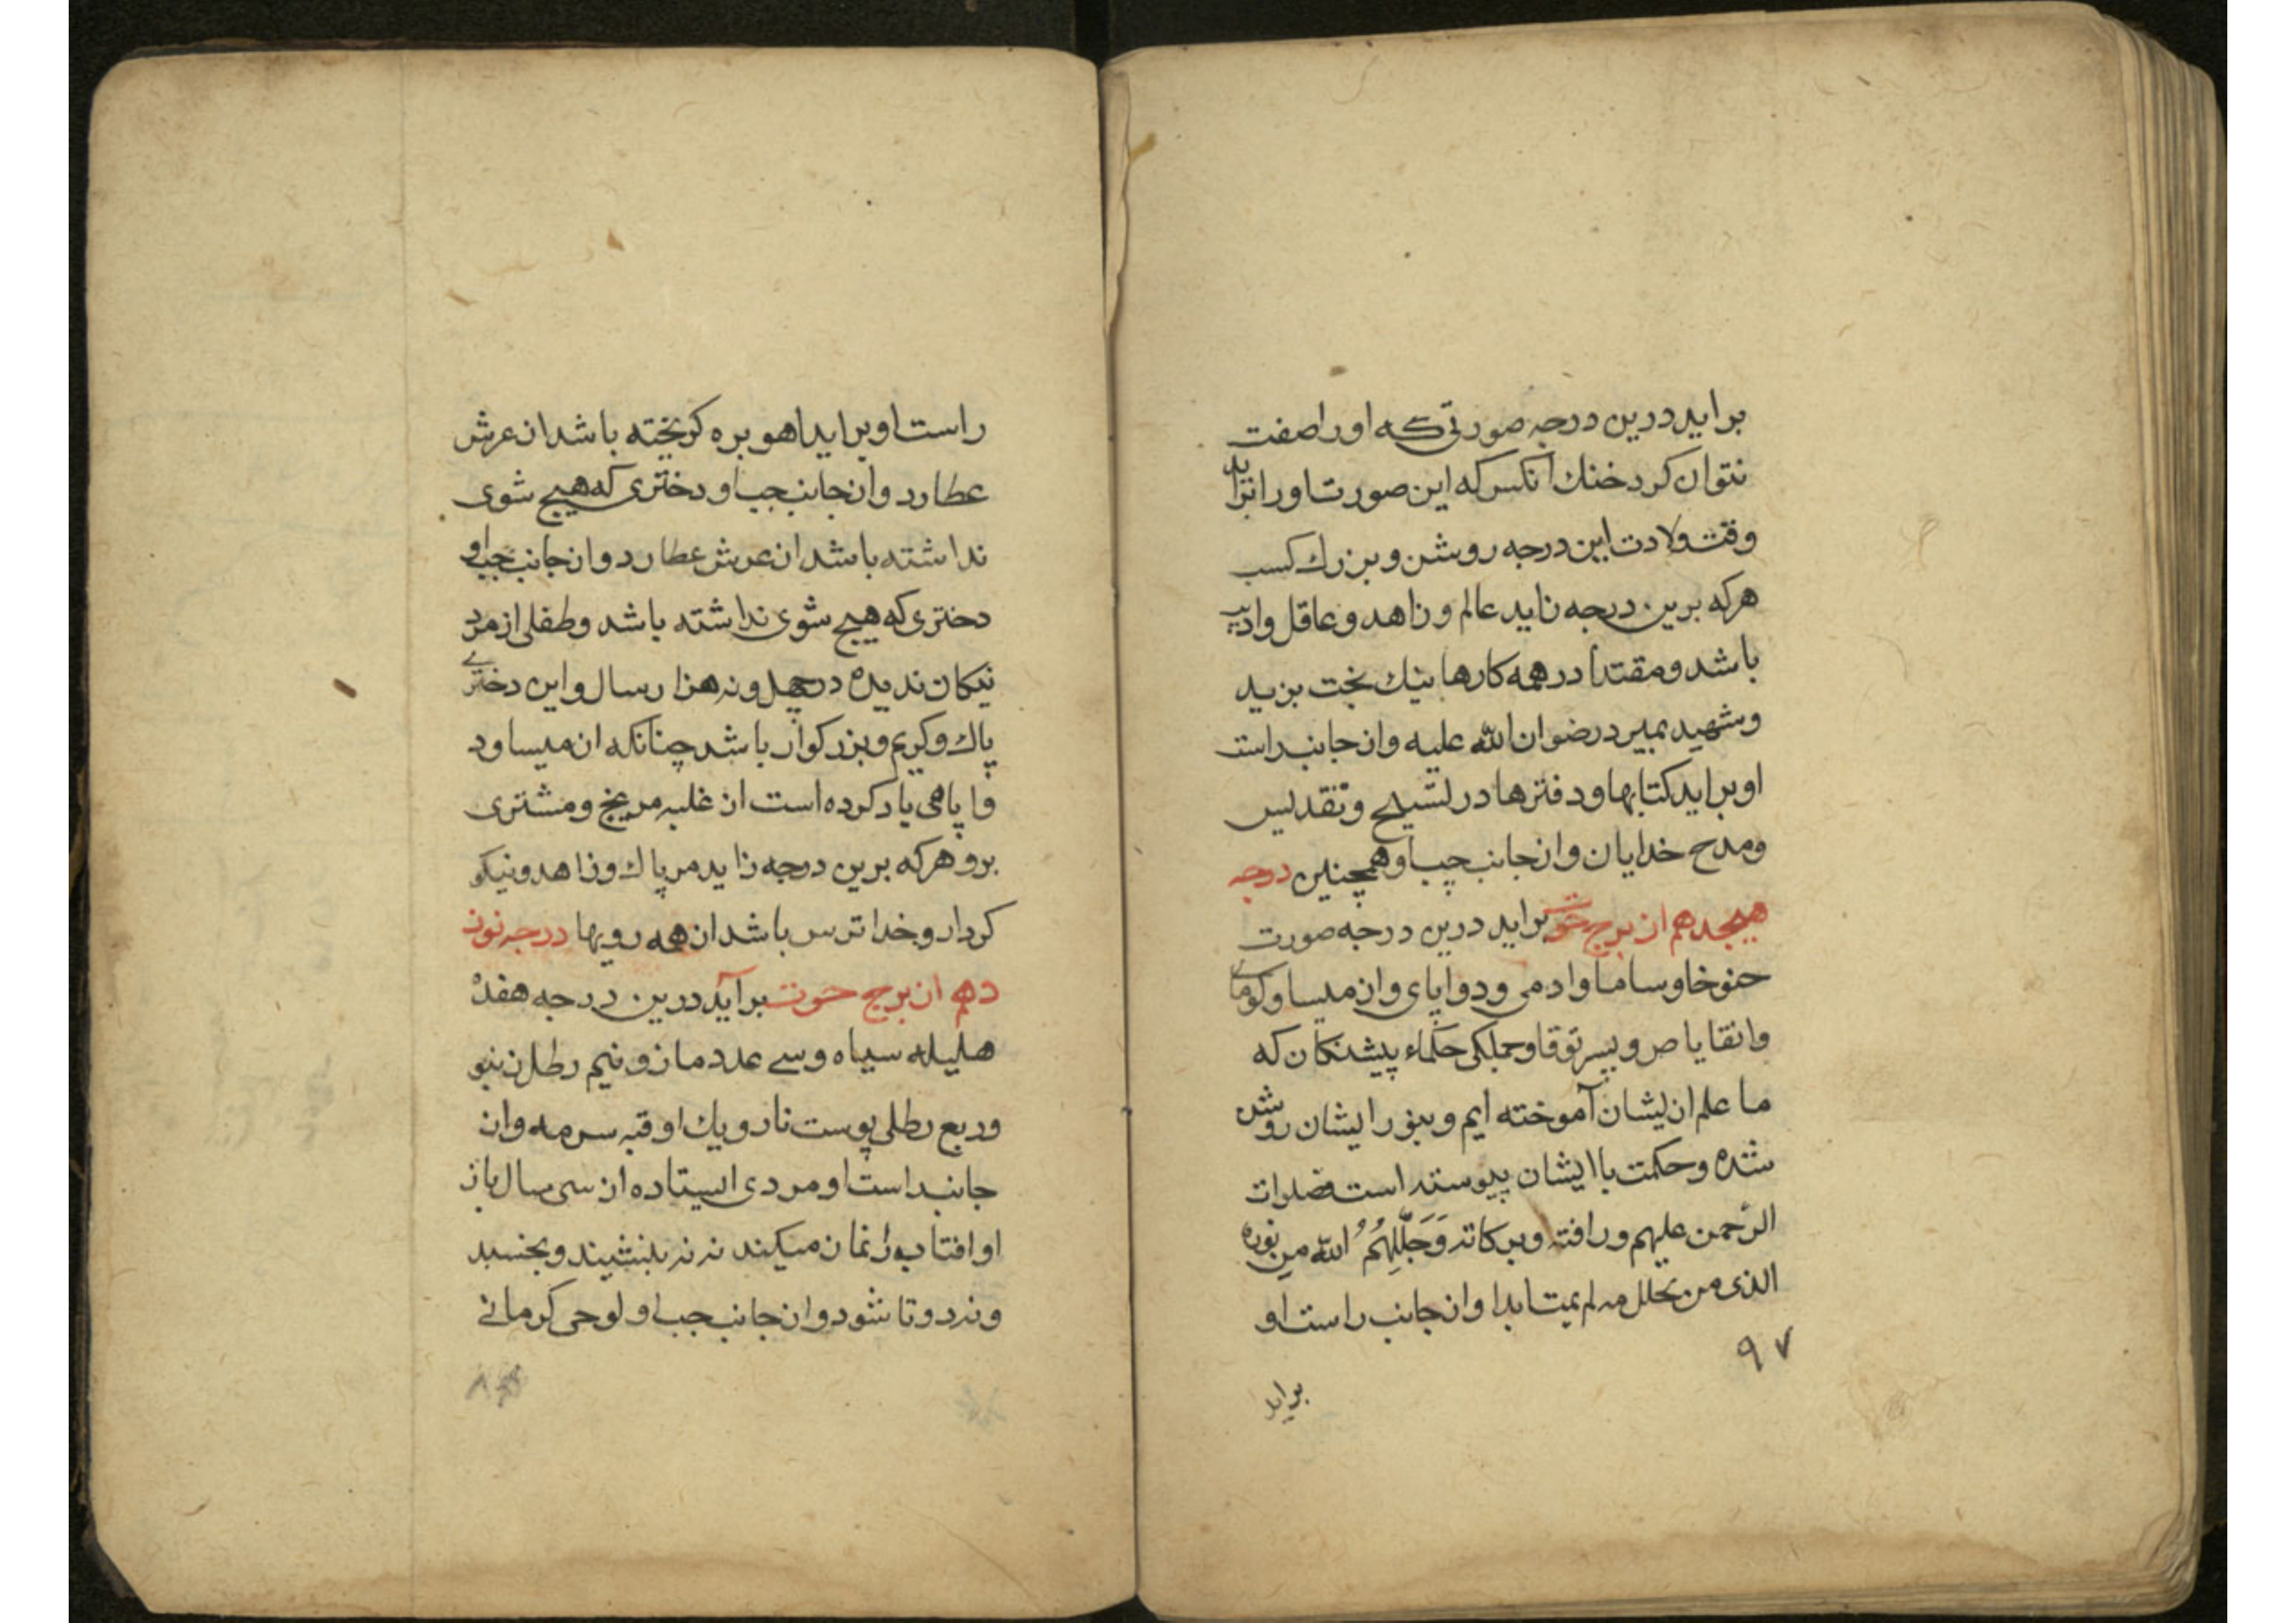 براید درین درجه صورتی که او را صفت
نتوان کرد خنك آنکس که این صورت او را براید
وقت ولادت این درجه روشن و بزرك کسب
هرکه برین درجه زاید عالم و زاهد و عاقل و ادیب
باشد و مقتدا در همه کارها نیك بخت بزید
و شهید بمیرد رضوان الله علیه واز جانب راست
او براید کتابها و دفترها در تسبیح و تقدیس
ومدح خدایان واز جانب چپ او همچنین درجه
هیجدهم از برج حوت براید درین درجه صورت
حنوخا وساما وادمی و دوابای واز میساو کوماے
وانقایاص و پسر توقا و جملکی حکماء پیشنکان که
ما علم از ایشان آموخته ایم و بنور ایشان روشن
شده و حکمت با ایشان پیوسته است فصلوات
الرحمن علیهم ورافته وبرکاته وَجَلَّلَهُمُ الله من نوره
الذی من تجلل به لم یمت ابدا واز جانب راست او
۹۷
براید
راست او براید اهو بره کریخته باشد از عرش
عطارد واز جانب چپ او دختری که هیچ شوی
نداشته باشد از عرش عطارد واز جانب چپ او
دختری که هیچ شوی نداشته باشد و طفلی از مرد
نیکان ندیده در چهل ونه هزار سال واین دخترے
پاك وکریم و بزرکوار باشد چنانکه از میساود
وا پامی یاد کرده است از غلبه مریخ و مشتری
برو هرکه برین درجه زاید مر پاك و زاهد و نیکو
کردار و خدا ترس باشد از همه رویها درجه نوز
دهم از برج حوت برآید درین درجه هفده
هلیله سیاه وسے عدد مازو نیم رطل
وربع رطلی پوست نار ویك اوقیه سرمه واز
جانب راست او مردی ایستاده از سی سال باز
او افتاب را نماز میکند نه نه بنشیند و بخسبد
ونه دو تا شود واز جانب چپ او لوحی کرمانے